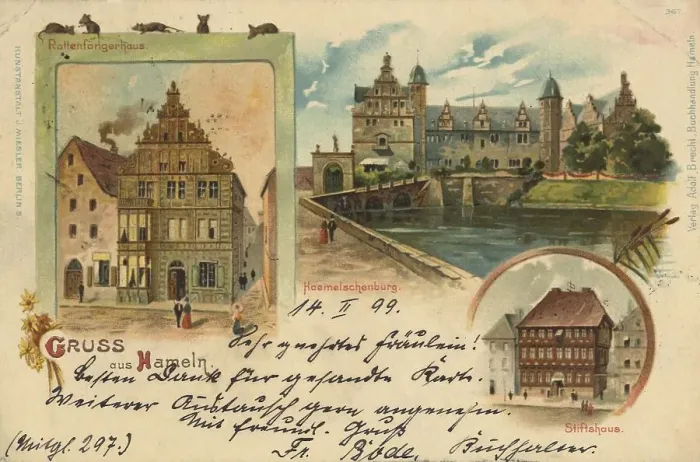 367
Rattenfängerhaus.
KUNSTANSTALT J. MIESLER, BERLIN S.
Verlag Adolf Brecht, Buchhandlung, Hameln.
Haemelschenburg.
Stiftshaus.
GRUSS
aus Hameln.
14. II 99.
Sehr geehrtes Fräulein!
Besten Dank für gesandte Karte.
Weiterer Austausch gern angenehm.
Mit freundl. Gruß
(Mitgl. 297.)
Fr. Bode, Buchhalter.